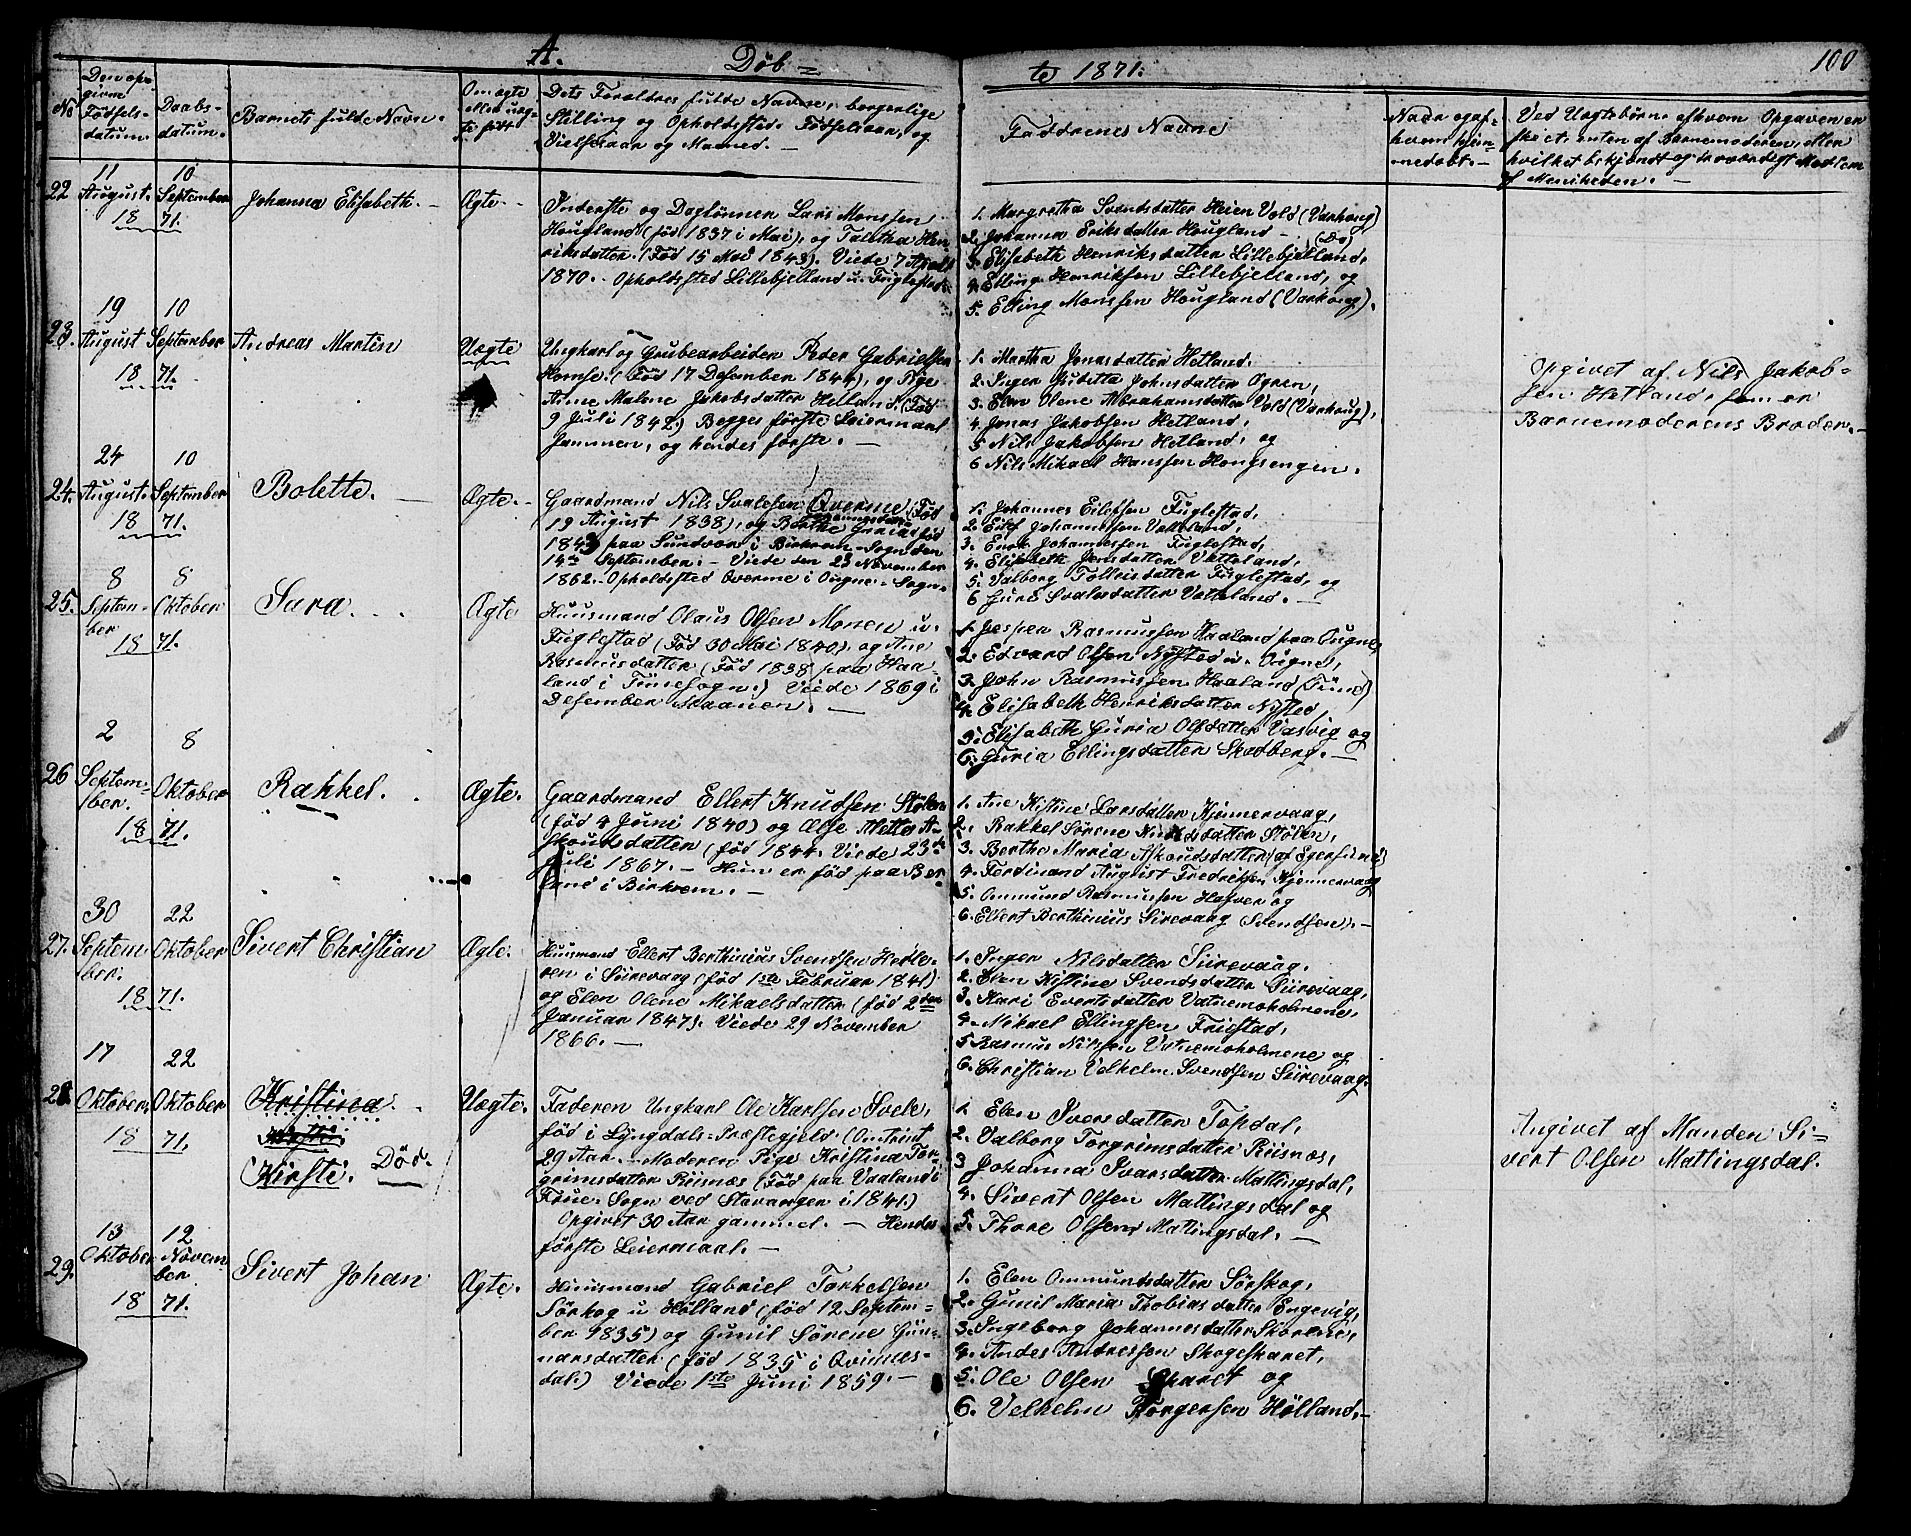 A. Döb- te 1871. 100
No
Den opgivne Födsels-datum.
Daabs-datum.
Barnets fulde Navn.
Om ægte eller uægte födt
Dets Forældres fulde Navne, borgerlige
Stilling og Opholdssted. Födselsaar, og
Vielsesaar og Maaned. -
Faddrenes Navne
Naar og af
hvem hjem-
medöbt. -
Ved Uægtebörn: af hvem Opgaven er
skeet, enten af Barnemoderen, eller
hvilket bekjendt og troværdigt Medlem
af Menigheden. -
22
11 August. 1871.
10 September
Johanna Elisabeth. -
Ægte. -
Inderste og Daglönner Lars Monssen
Hougland (föd 1837 i Mai), og Taletha Hen-
riksdatter. (Föd 15 Mai 1843). Viede 7 April
1870. - Opholdssted Lillebjelland u. Fuglestad.
1. Margretha Svendsdatter Heien Vold (Varhoug)
2. Johanna Eriksdatter Hougland - (Do)
3. Elisabeth Henriksdatter Lillebjelland,
4. Elling Henriksen Lillebjelland, og
5. Elling Monssen Hougland (Varhoug).
23.
19 August 1871.
10 September
Andreas Martin
Uægte
Ungkarl og Grubearbeider Peder Gabrielsen
Homse. (Föd 17 Desember 1844), og Pige
Anne Malene Jakobsdatter Helland. (Föd
9 Juli 1842.) Begges förste Leiermaal
sammen, og hendes förste. -
1. Martha Jonasdatter Hetland.
2. Inger Judetta Johnsdatter Ogren,
3. Elen Olene Abrahamsdatter Vold (Varhoug),
4. Jonas Jakobsen Hetland,
5 Nils Jakobsen Hetland, og
6 Nils Mikael Hanssen Hongsengen.
Opgivet af Nils Jakob-
sen Hetland, som er
Barnemoderens Broder. -
24.
24 August. 1871.
10 September
Bolette. -
Ægte. -
Gaardmand Nils Svalesen Qverme (Föd
19 August 1838), og Börthe
1843 paa Sundvor i Birkrem Sogn den
14de September. - Viede den 23 November
1862. Opholdssted Qverme i Ougne-Sogn.
1. Johannes Eilefsen Fuglestad,
2. Eilef Johannessen Vatteland,
3. Enok Johannessen Fuglestad,
4. Elisabeth Jonsdatter Vatteland,
5. Valborg Tolleisdatter Fuglestad, og
6 Guri Svalesdatter Vatteland. -
25.
8 September 1871.
8 Oktober
Sara.
Ægte
Huusmand Olaus Olsen Monen u.
Fuglestad (Föd 30 Mai 1840), og Ane
Rasmusdatter (Föd 1838 paa Haa-
land i Tiimesogn.) Viede 1869 i
Desember Maanen. -
1. Jesper Rasmussen Haaland paa Ougne,
2. Edvard Olsen Nysted u. Ougne,
3. John Rasmussen Haaland (Tiime)
4. Elisabeth Henriksdatter Nysted,
5. Elisabeth Guria Olsdatter Vasvig og
6. Guria Ellingsdatter Skadberg. -
26
2 September. 1871.
8 Oktober
Rakkel.
Ægte.
Gaardmand Ellert Knudsen Stölen
(föd 4 Juni 1840) og Else Mette A-
skoudsdatter (föd 1844. Viede 23de
Juli 1867. - Hun er föd paa Ber-
land i Birkrem. -
1. Ane Kistine Larsdatter Kjönnervaag,
2. Rakkel Sörene Knudsdatter Stölen,
3. Berthe Maria Askoudsdatter (af Egersund)
4. Ferdinand August Fredriksen Kjönnervaag
5. Ommund Rasmussen Hafver og
6. Ellert Berthinius Sirevaag (Svendsen). -
27.
30 September. 1871.
22 Oktober
Sivert Christian
Ægte.
Huusmand Ellert Berthinius Svendsen Hedle-
ren i Siirevaag, (föd 1ste Februar 1841)
og Elen Olene Mikaelsdatter (föd 2den
Januar 1847). Viede 29 November
1866. -
1. Inger Nilsdatter Siirevaag.
2. Elen Kistine Svendsdatter Siirevaag,
3. Kari Evertsdatter Vatnemoholmene,
4. Mikael Ellingsen Frigstad,
5 Rasmus Nilssen Vatnemoholmene og
6. Christian Velhelm Svendsen Siirevaag.
28
17 Oktober, 1871.
22 Oktober
Kristina.
Kirsti. Död.
Uægte.
Faderen Ungkarl Ole Karlsen Svele,
föd i Lyngdals-Præstegjeld (Omtrent
29 Aar. Moderen Pige Kristina Tor-
grimsdatter Riisnæs (föd paa Vaaland i
Frue-Sogn ved Stavanger i 1841.)
Opgivet 30 Aar gammel. - Hendes
förste Leiermaal. -
1. Elen Iversdatter Topdal,
2. Valborg Torgrimsdatter Riisnæs,
3 Johanna Ivarsdatter Mattingsdal,
4. Sivert Olsen Mattingsdal og
5. Thore Olsen Mattingsdal. -
Angivet af Manden Si-
vert Olsen Mattingsdal.
29.
13 Oktober 1871.
12 November
Sivert Johan
Ægte.
Huusmand Gabriel Torkelsen
Sörskog u Hölland (föd 12 Septem-
ber 1835) og Gunil Sörene Gun-
narsdatter (föd 1835 i Qvines-
dal.) Viede 1ste Juni 1859. -
1. Elen Ommundsdatter Sörskog,
2. Gunil Maria Thobiasdatter Engevig,
3. Ingeborg Johannesdatter Skorene,
4. Andes Andressen Skogeskaret,
5. Ole Olsen Skaret og
6. Velhelm Torgersen Hölland. -